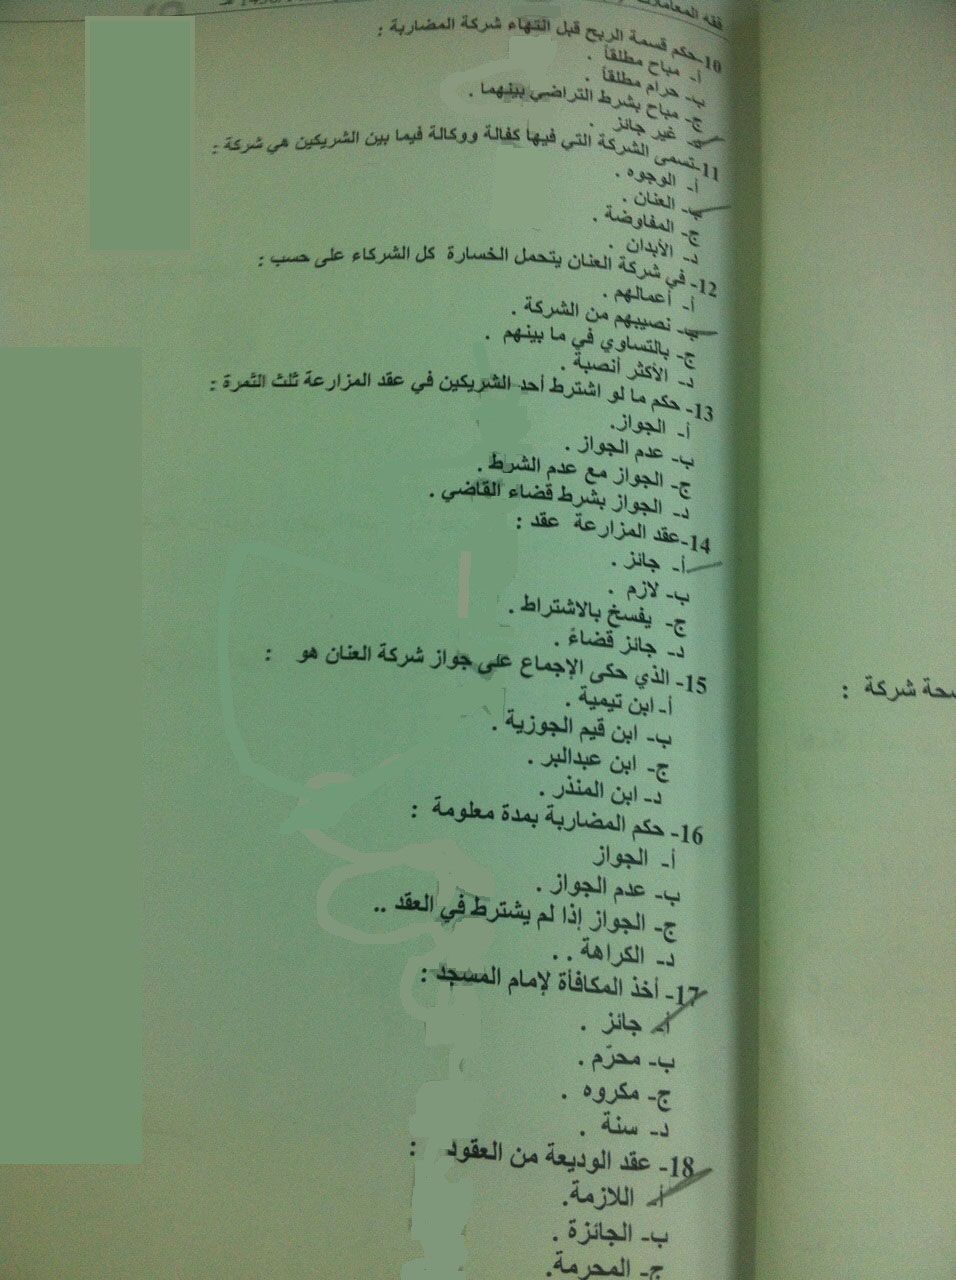 فقه المعاملات
10- حكم قسمة الربح قبل انتهاء شركة المضاربة :
أ- مباح مطلقاً .
ب- حرام مطلقاً .
ج- مباح بشرط التراضي بينهما .
د- غير جائز .
11- تسمى الشركة التي فيها كفالة ووكالة فيما بين الشريكين هي شركة :
أ- الوجوه .
ب- العنان .
ج- المفاوضة .
د- الأبدان .
12- في شركة العنان يتحمل الخسارة كل الشركاء على حسب :
أ- أعمالهم .
ب- نصيبهم من الشركة .
ج- بالتساوي في ما بينهم .
د- الأكثر أنصبة .
13- حكم ما لو اشترط أحد الشريكين في عقد المزارعة ثلث الثمرة :
أ- الجواز.
ب- عدم الجواز .
ج- الجواز مع عدم الشرط .
د- الجواز بشرط قضاء القاضي .
14- عقد المزارعة عقد :
أ- جائز .
ب- لازم .
ج- يفسخ بالاشتراط .
د- جائز قضاءً .
15- الذي حكى الإجماع على جواز شركة العنان هو :
أ- ابن تيمية .
ب- ابن قيم الجوزية .
ج- ابن عبدالبر .
د- ابن المنذر .
16- حكم المضاربة بمدة معلومة :
أ- الجواز
ب- عدم الجواز .
ج- الجواز إذا لم يشترط في العقد ..
د- الكراهة . .
17- أخذ المكافأة لإمام المسجد :
أ- جائز .
ب- محرّم .
ج- مكروه .
د- سنة .
18- عقد الوديعة من العقود :
أ- اللازمة.
ب- الجائزة .
ج- المحرمة.
شركة :